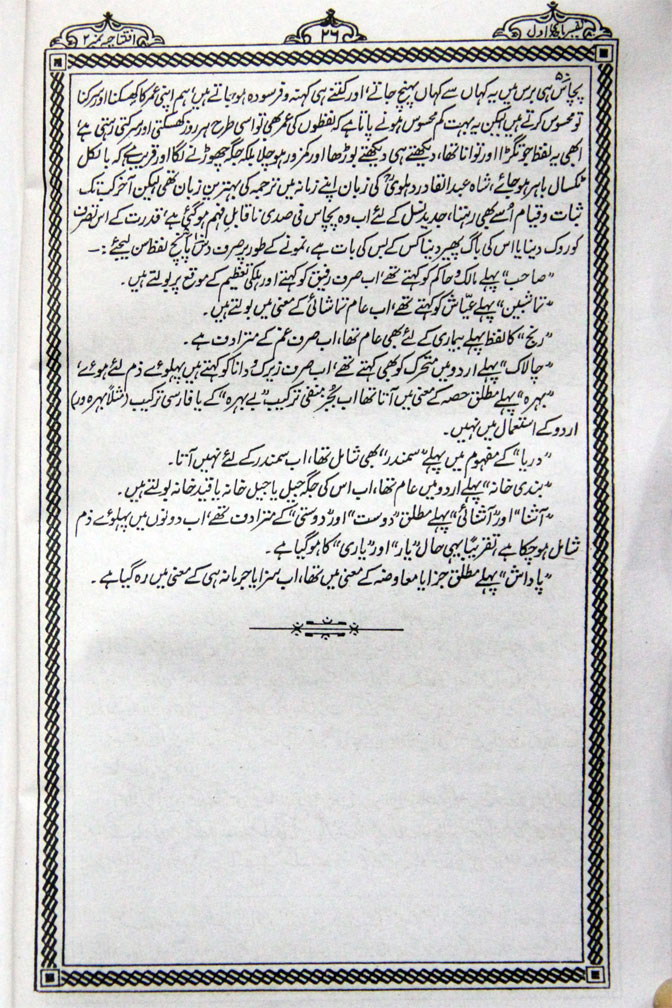 تفسیر ماجدی اول
۲۶
افتتاحیہ نمبر ۲
پچاسؔ ہی برس میں یہ کہاں سے کہاں پہنچ جاتے، اور کتنے ہی کہنہ و فرسودہ ہو جاتے ہیں، ہم اپنی عمر کا کھسکنا اور سرکنا
تو محسوس کرتے ہیں لیکن یہ بہت کم محسوس ہونے پاتا ہے کہ لفظوں کی عمر بھی تو اسی طرح ہر روز کھسکتی اور سرکتی رہتی ہے،
ابھی یہ لفظ جو تگڑا اور توانا تھا، دیکھتے ہی دیکھتے بوڑھا اور کمزور ہو چلا بلکہ جگہ چھوڑنے لگا اور قریب ہے کہ بالکل
ٹکسال باہر ہو جائے، شاہ عبدالقادر دہلویؒ کی زبان اپنے زمانہ میں ترجمہ کی بہترین زبان تھی لیکن آخر کب تک
ثبات و قیام اُسے بھی رہتا، جدید نسل کے لئے اب وہ پچاس فی صدی ناقابل فہم ہو گئی ہے، قدرت کے اس تصرف
کو روک دینا یا اس کی باگ پھیر دینا کس کے بس کی بات ہے، نمونے کے طور پر صرف دس پانچ لفظ سن لیجئے :—
”صاحب“ پہلے مالک و حاکم کو کہتے تھے، اب صرف رفیق کو کہتے اور ہلکی تعظیم کے موقع پر بولتے ہیں۔
”تماشبین“ پہلے عیّاش کو کہتے تھے، اب عام تماشائی کے معنی میں بولتے ہیں۔
”رنج“ کا لفظ پہلے بیماری کے لئے بھی عام تھا، اب صرف غم کے مترادف ہے۔
”چالاک“ پہلے اردو میں متحرک کو بھی کہتے تھے، اب صرف زیرک و دانا کو کہتے ہیں پہلوئے ذم لئے ہوئے،
”بہرہ“ پہلے مطلق حصہ کے معنی میں آتا تھا اب بجز منفی ترکیب ”بے بہرہ“ کے یا فارسی ترکیب (مثلاً بہرہ ور)
اردو کے استعمال میں نہیں۔
”دریا“ کے مفہوم میں پہلے ”سمندر“ بھی شامل تھا، اب سمندر کے لئے نہیں آتا۔
”بندی خانہ“ پہلے اردو میں عام تھا، اب اس کی جگہ جیل یا جیل خانہ یا قید خانہ بولتے ہیں۔
”آشنا“ اور ”آشنائی“ پہلے مطلق ”دوست“ اور ”دوستی“ کے مترادف تھے، اب دونوں میں پہلوئے ذم
شامل ہو چکا ہے تقریباً یہی حال ”یار“ اور ”یاری“ کا ہو گیا ہے۔
”پاداش“ پہلے مطلق جزا یا معاوضہ کے معنی میں تھا، اب سزا یا جرمانہ ہی کے معنی میں رہ گیا ہے۔